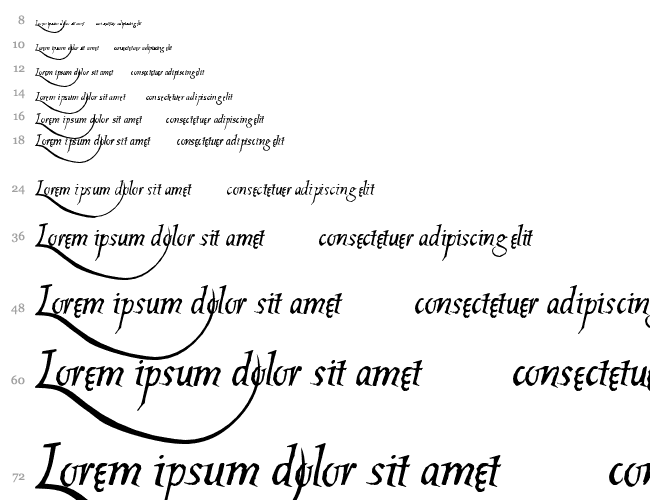 8 Lorem ipsum dolor sit amet consectetuer adipiscing elit
10 Lorem ipsum dolor sit amet consectetuer adipiscing elit
12 Lorem ipsum dolor sit amet consectetuer adipiscing elit
14 Lorem ipsum dolor sit amet consectetuer adipiscing elit
16 Lorem ipsum dolor sit amet consectetuer adipiscing elit
18 Lorem ipsum dolor sit amet consectetuer adipiscing elit
24 Lorem ipsum dolor sit amet consectetuer adipiscing elit
36 Lorem ipsum dolor sit amet consectetuer adipiscing elit
48 Lorem ipsum dolor sit amet consectetuer adipiscing
60 Lorem ipsum dolor sit amet consectetu
72 Lorem ipsum dolor sit amet con